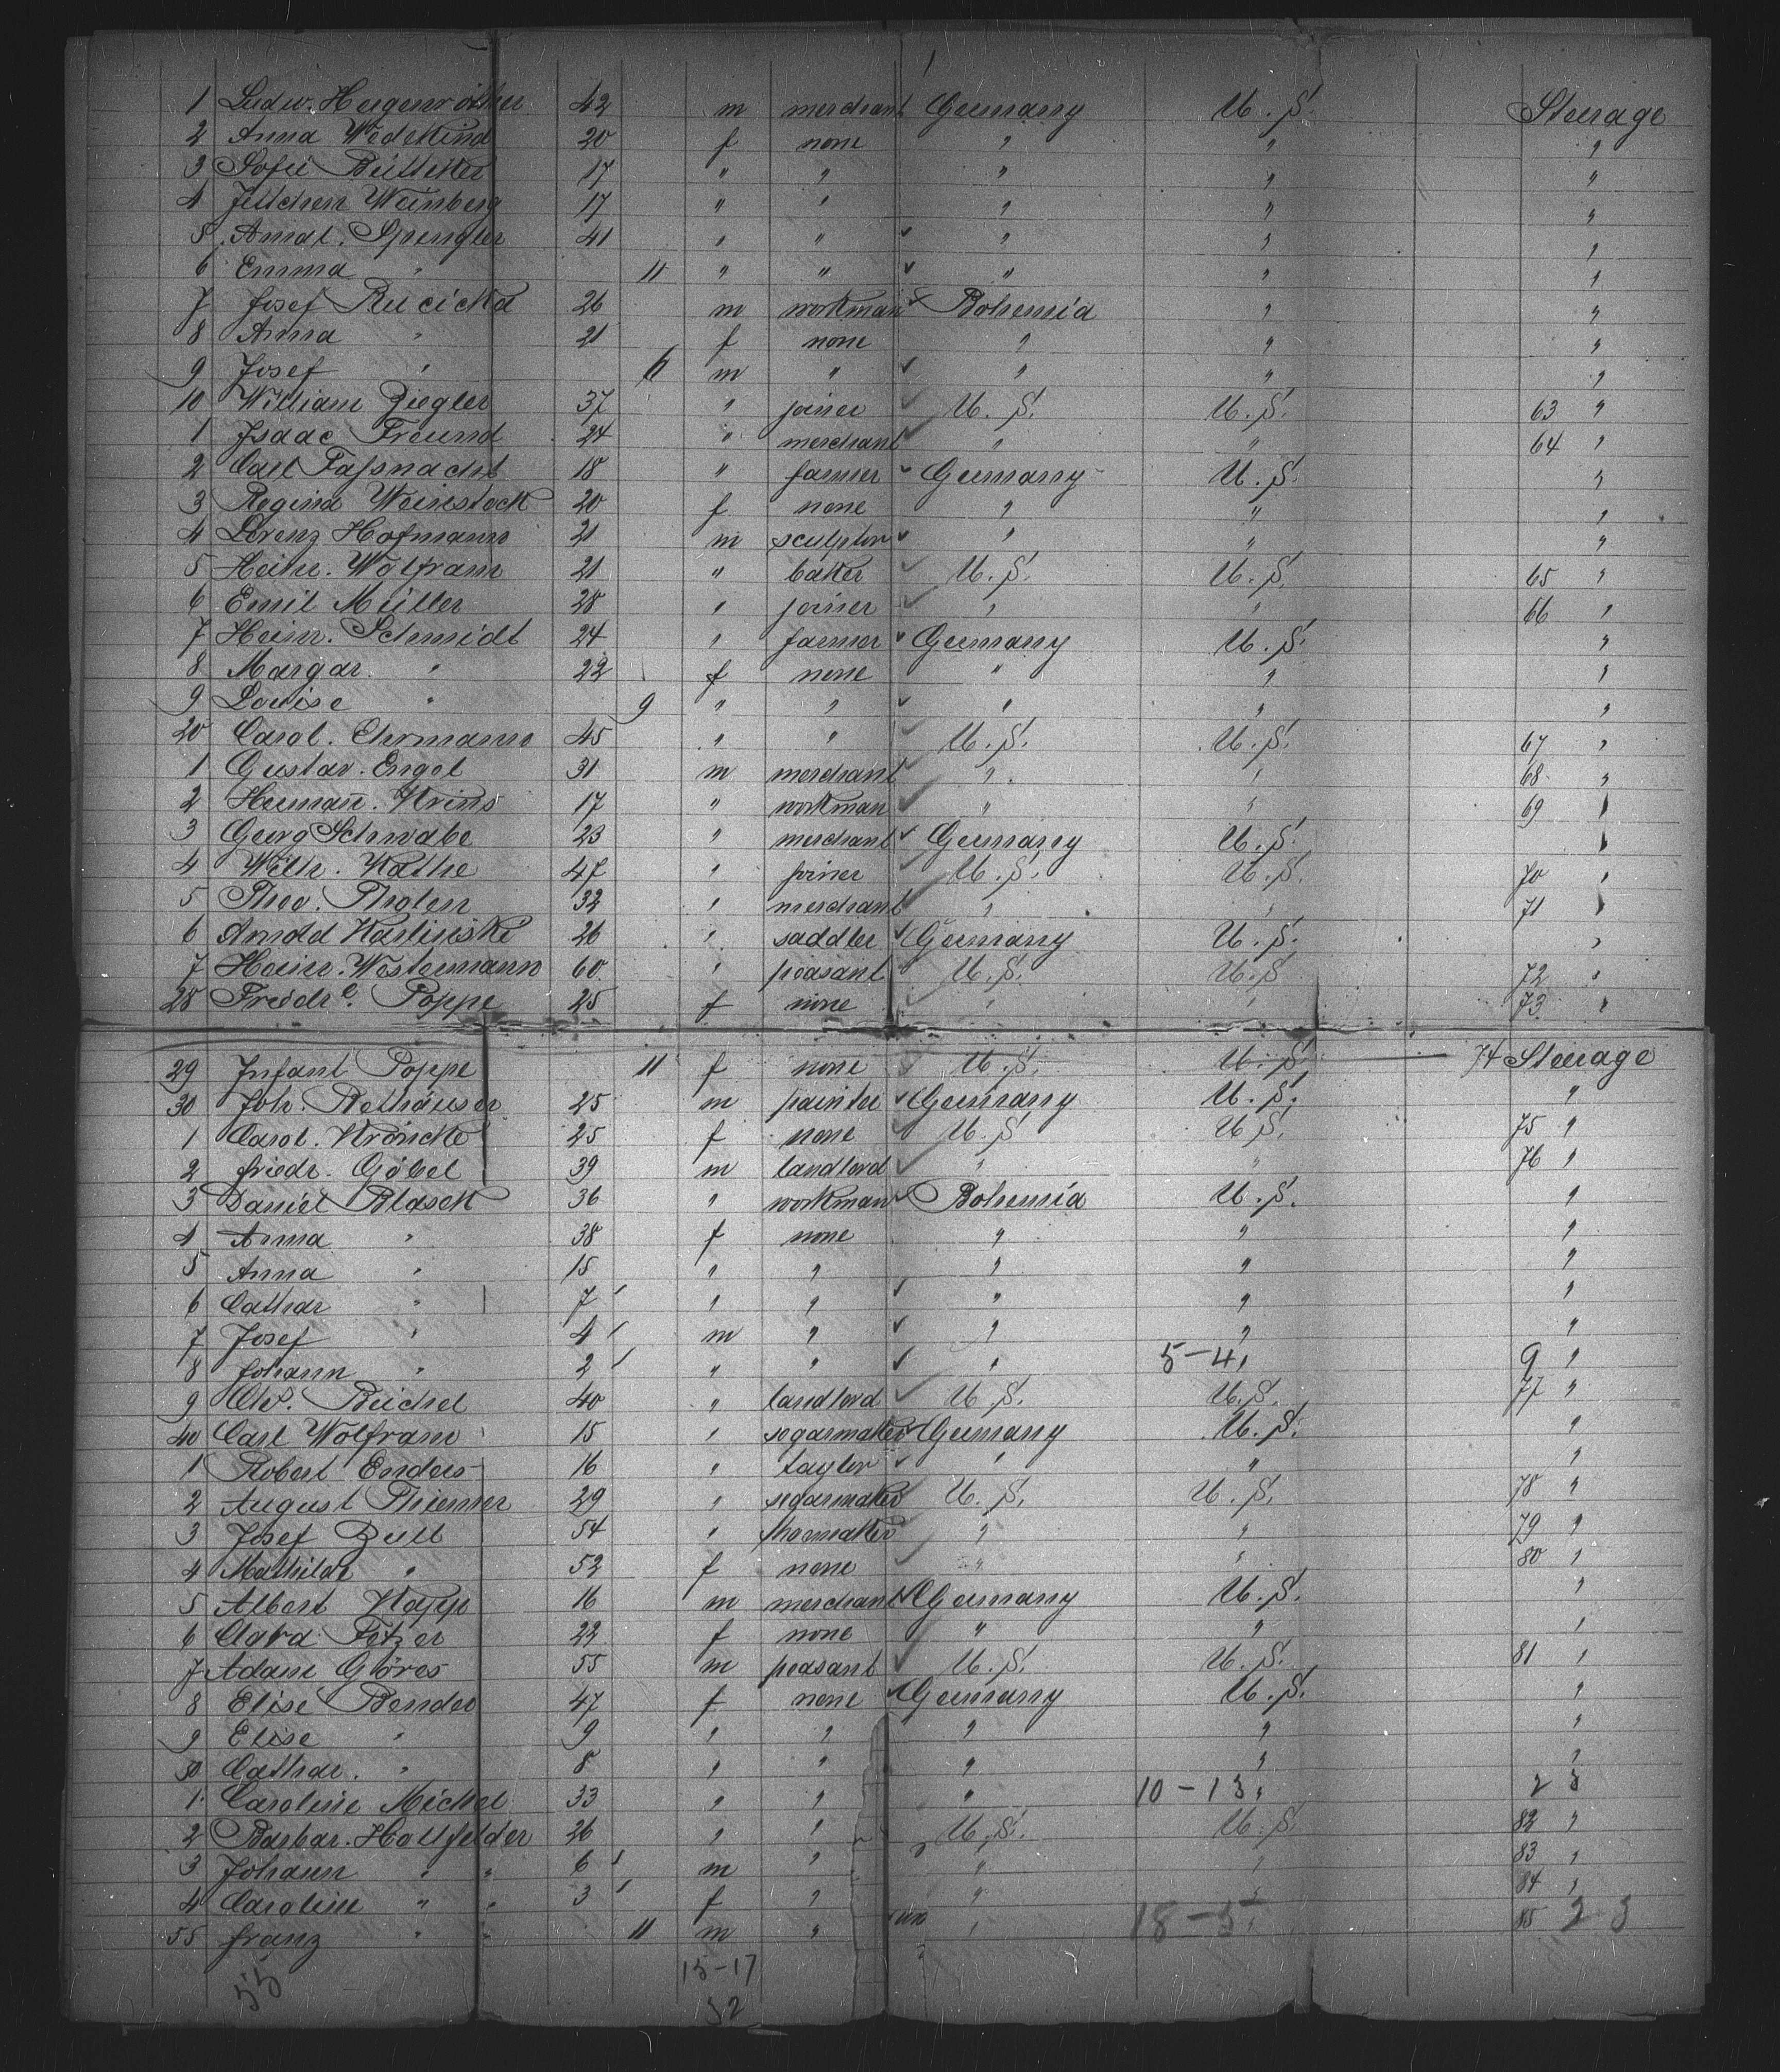 1 Ludw. Hergenröther 42 m merchant Germany U.S. Steerage
2 Anna Wedekind 20 f none " " "
3 Sofie Büttiker 17 " " " " "
4 Jettchen Weinberg 17 " " " " "
5 Amal. Spengler 41 " " " " "
6 Emma " 11 " " " " "
7 Josef Rucicka 26 m workman Bohemia " "
8 Anna " 21 f none " " "
9 Josef " 6 m " " " "
10 William Ziegler 37 " joiner U.S. U.S. 63 "
1 Isaac Freund 24 " merchant " " 64 "
2 Carl Faßnacht 18 " farmer Germany U.S. "
3 Regina Weinstock 20 f none " " "
4 Lorenz Hofmann 21 m sculptor " " "
5 Heinr. Wolfram 21 " baker U.S. U.S. 65 "
6 Emil Müller 28 " joiner " " 66 "
7 Heinr. Schmidt 24 " farmer Germany U.S. "
8 Margar. " 22 f none " " "
9 Louise " 9 " " " " "
20 Carol. Ehrmann 45 " " U.S. U.S. 67 "
1 Gustav. Engel 31 m merchant " " 68 "
2 Hermañ. Krins 17 " workman " " 69 "
3 Georg Schwabe 23 " merchant Germany U.S. "
4 Wilh. Kathe 47 " joiner U.S. U.S. 70 "
5 Theo. Tholen 32 " merchant " " 71 "
6 Arnold Karlinski 26 " saddler Germany U.S. "
7 Heinr. Westermann 60 " peasant U.S. U.S. 72 "
28 Friedre. Poppe 25 f none " " 73 "
29 Infant Poppe 11 f none U.S. U.S. 74 Steerage
30 Joh. Rethäuser 25 m painter Germany U.S. "
1 Carol. Kröncke 25 f none U.S. U.S. 75 "
2 Friedr. Göbel 39 m landlord " " 76 "
3 Daniel Blasck 36 " workman Bohemia U.S. "
4 Anna " 38 f none " " "
5 Anna " 15 " " " " "
6 Cathar " 7 " " " " "
7 Josef " 4 m " " " "
8 Johann " 2 " " " 5-4 " 9 "
9 Chr. Büchel 40 " landlord U.S. U.S. 77 "
40 Carl Wolfram 15 " segarmaker Germany U.S. "
1 Robert Enders 16 " taylor " " "
2 August Thiemer 29 " segarmaker U.S. U.S. 78 "
3 Josef Zull 54 " shoemaker " " 79 "
4 Mathilde " 52 f none " " 80 "
5 Albert Kapp 16 m merchant Germany U.S. "
6 Clara Fetzer 22 f none " " "
7 Adam Göres 55 m peasant U.S. U.S. 81 "
8 Elise Bender 47 f none Germany U.S. "
9 Elise " 9 " " " " "
50 Cathar. " 8 " " " " "
1 Caroline Michel 33 " " " 10-13 " 2 3
2 Barbar. Hollfelder 26 " " U.S. U.S. 82 "
3 Johann " " 6 m " " " 83 "
4 Caroline " " 3 f " " " 84 "
55 Franz " " 11 m " " 18-5 " 85 2 3
55 15-17
52